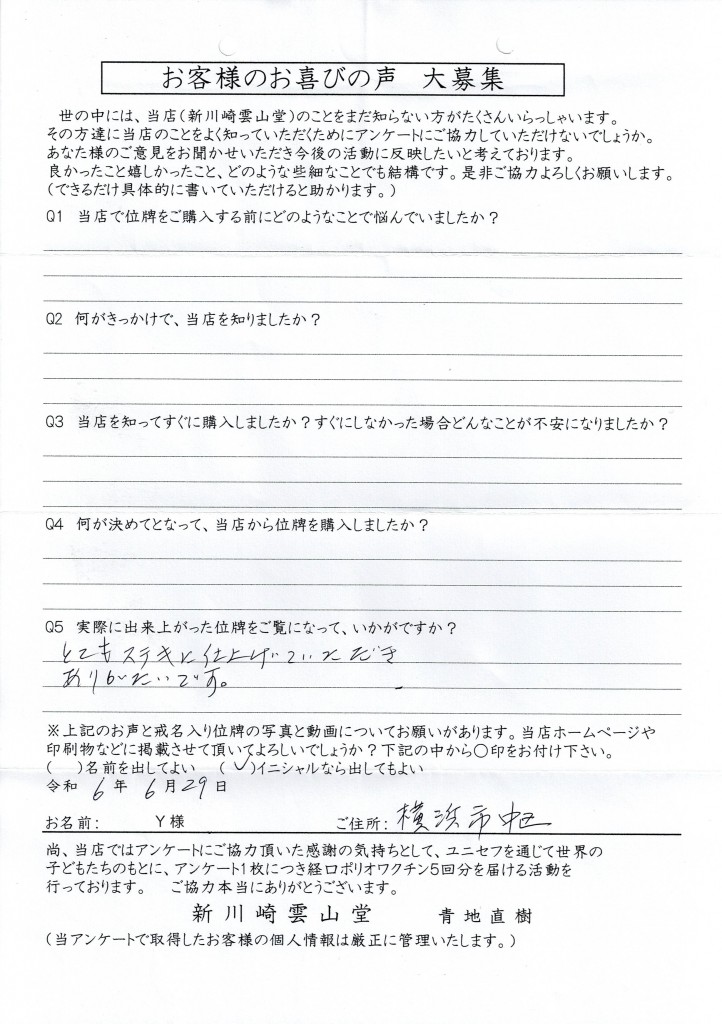 お客様のお喜びの声　大募集
世の中には、当店(新川崎雲山堂)のことをまだ知らない方がたくさんいらっしゃいます。
その方達に当店のことをよく知っていただくためにアンケートにご協力していただけないでしょうか。
あなた様のご意見をお聞かせいただき今後の活動に反映したいと考えております。
良かったこと嬉しかったこと、どのような些細なことでも結構です。是非ご協力よろしくお願いします。
(できるだけ具体的に書いていただけると助かります。)
Q1　当店で位牌をご購入する前にどのようなことで悩んでいましたか？
Q2　何がきっかけで、当店を知りましたか？
Q3　当店を知ってすぐに購入しましたか？すぐにしなかった場合どんなことが不安になりましたか？
Q4　何が決めてとなって、当店から位牌を購入しましたか？
Q5　実際に出来上がった位牌をご覧になって、いかがですか？
とてもステキに仕上げていただき
ありがたいです。
※上記のお声と戒名入り位牌の写真と動画についてお願いがあります。当店ホームページや
印刷物などに掲載させて頂いてよろしいでしょうか？下記の中から〇印をお付け下さい。
(　)名前を出してよい　(✓)イニシャルなら出してもよい
令和 6 年 6 月 29 日
お名前：　Y様　ご住所：横浜市中区
尚、当店ではアンケートにご協力頂いた感謝の気持ちとして、ユニセフを通じて世界の
子どもたちのもとに、アンケート1枚につき経口ポリオワクチン5回分を届ける活動を
行っております。　ご協力本当にありがとうございます。
新川崎雲山堂　青地直樹
(当アンケートで取得したお客様の個人情報は厳正に管理いたします。)